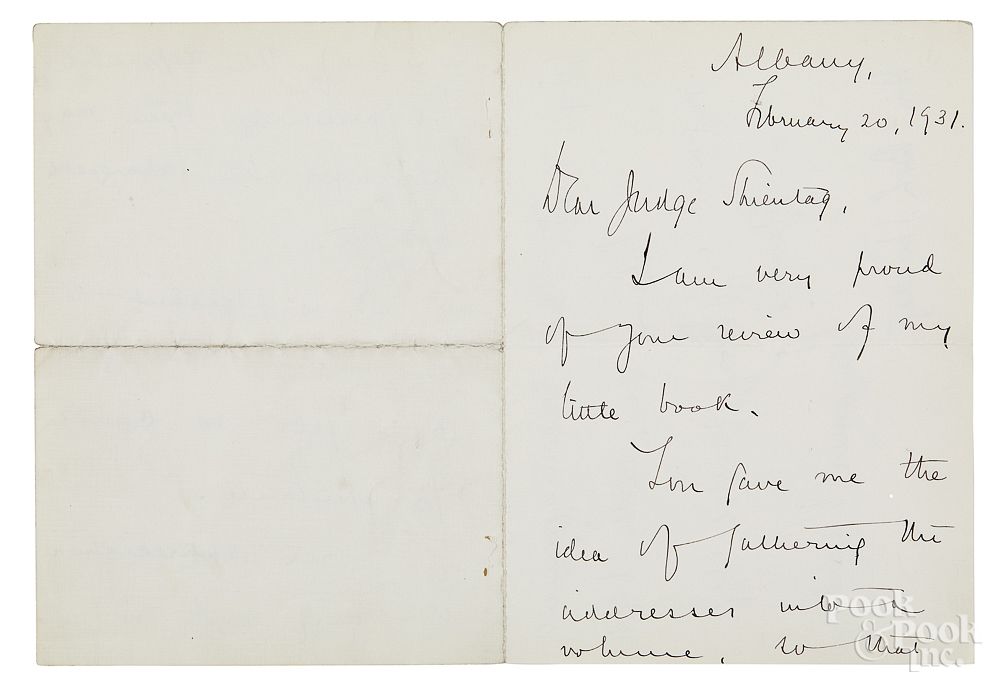 Albany,
February 20, 1931.
Dear Judge Shientag,
I am very proud
of your review of my
little book.
You gave me the
idea of gathering the
addresses into a
volume, so that
Pook
& Pook
Inc.